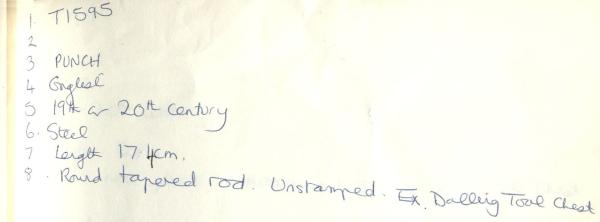 1 T1595
2
3 PUNCH
4 English
5 19th or 20th Century
6. Steel
7 Length 17.4cm.
8. Round tapered rod. Unstamped. Ex. Tool Chest